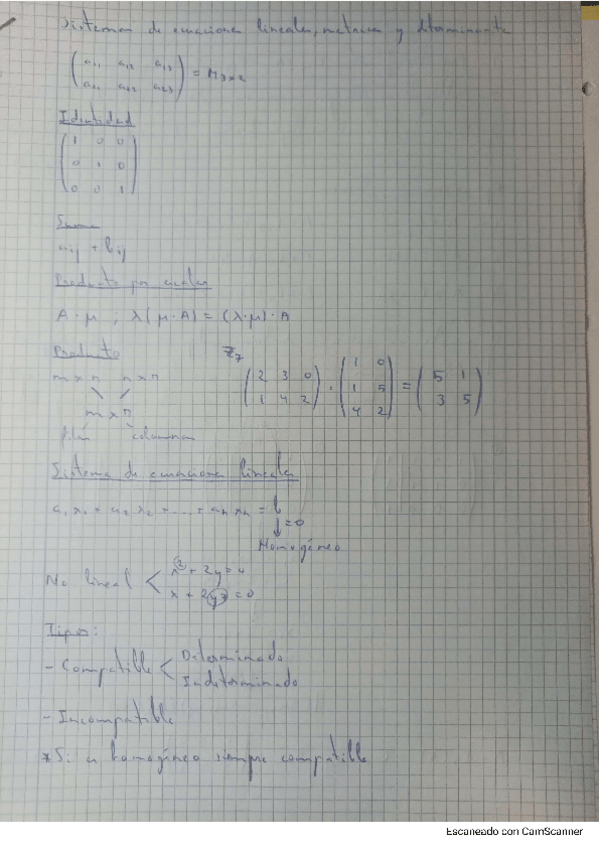 Sistemas de ecuaciones lineales, matrices y determinantes
( a11 a12 a13 ) = M3x2
( a21 a22 a23 )
Identidad
( 1 0 0 )
( 0 1 0 )
( 0 0 1 )
Suma
aij + bij
Producto por escalar
A · μ ; λ(μ · A) = (λ·μ) · A
Producto
m x n n x n
m x n
filas columnas
Z7
( 2 3 0 ) · ( 1 0 ) = ( 5 1 )
( 1 4 2 ) ( 1 5 ) ( 3 5 )
( 4 2 )
Sistema de ecuaciones lineales
a1 x1 + a2 x2 + ... + an xn = b
= 0
Homogéneo
No lineal < x² + 2y = 4
x + 2yz = 0
Tipos:
- Compatible < Determinado
Indeterminado
- Incompatible
* Si es homogéneo siempre compatible
Escaneado con CamScanner